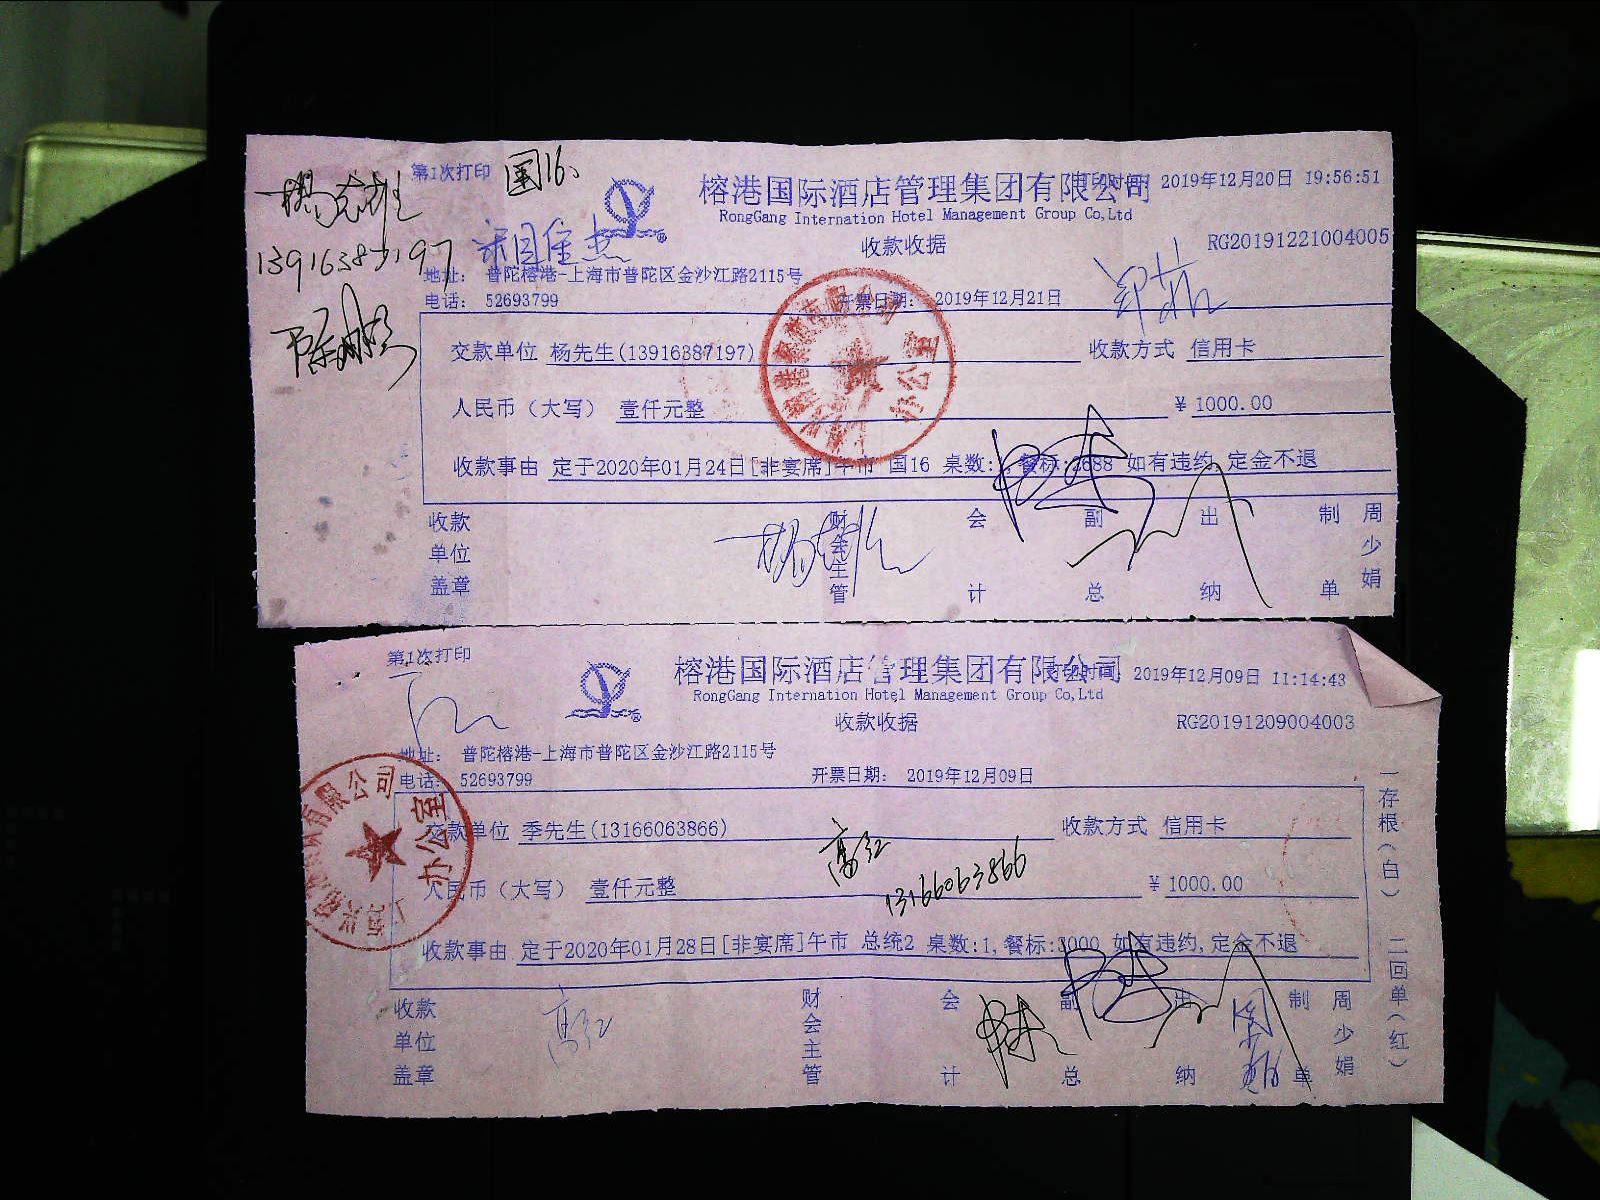 第1次打印 国16、
榕港国际酒店管理集团有限公司 打印时间 2019年12月20日 19:56:51
RongGang International Hotel Management Group Co,Ltd
收款收据 RG20191221004005
13916387197
地址： 普陀榕港-上海市普陀区金沙江路2115号
电话： 52693799 开票日期： 2019年12月21日
交款单位 杨先生(13916387197) 收款方式 信用卡
人民币（大写） 壹仟元整 ￥ 1000.00
收款事由 定于2020年01月24日[非宴席]午市 国16 桌数:1,餐标:2688 如有违约,定金不退
办公室
收款单位盖章 财会主管 会计 副总 出纳 制单 周少娟
第1次打印
榕港国际酒店管理集团有限公司 打印时间 2019年12月09日 11:14:43
RongGang International Hotel Management Group Co,Ltd
收款收据 RG20191209004003
地址： 普陀榕港-上海市普陀区金沙江路2115号
电话： 52693799 开票日期： 2019年12月09日
交款单位 季先生(13166063866) 收款方式 信用卡
高红
13166063866
人民币（大写） 壹仟元整 ￥ 1000.00
收款事由 定于2020年01月28日[非宴席]午市 总统2 桌数:1,餐标:3000 如有违约,定金不退
有限公司
办公室
高红
收款单位盖章 财会主管 会计 副总 出纳 制单 周少娟
一存根(白) 二回单(红)